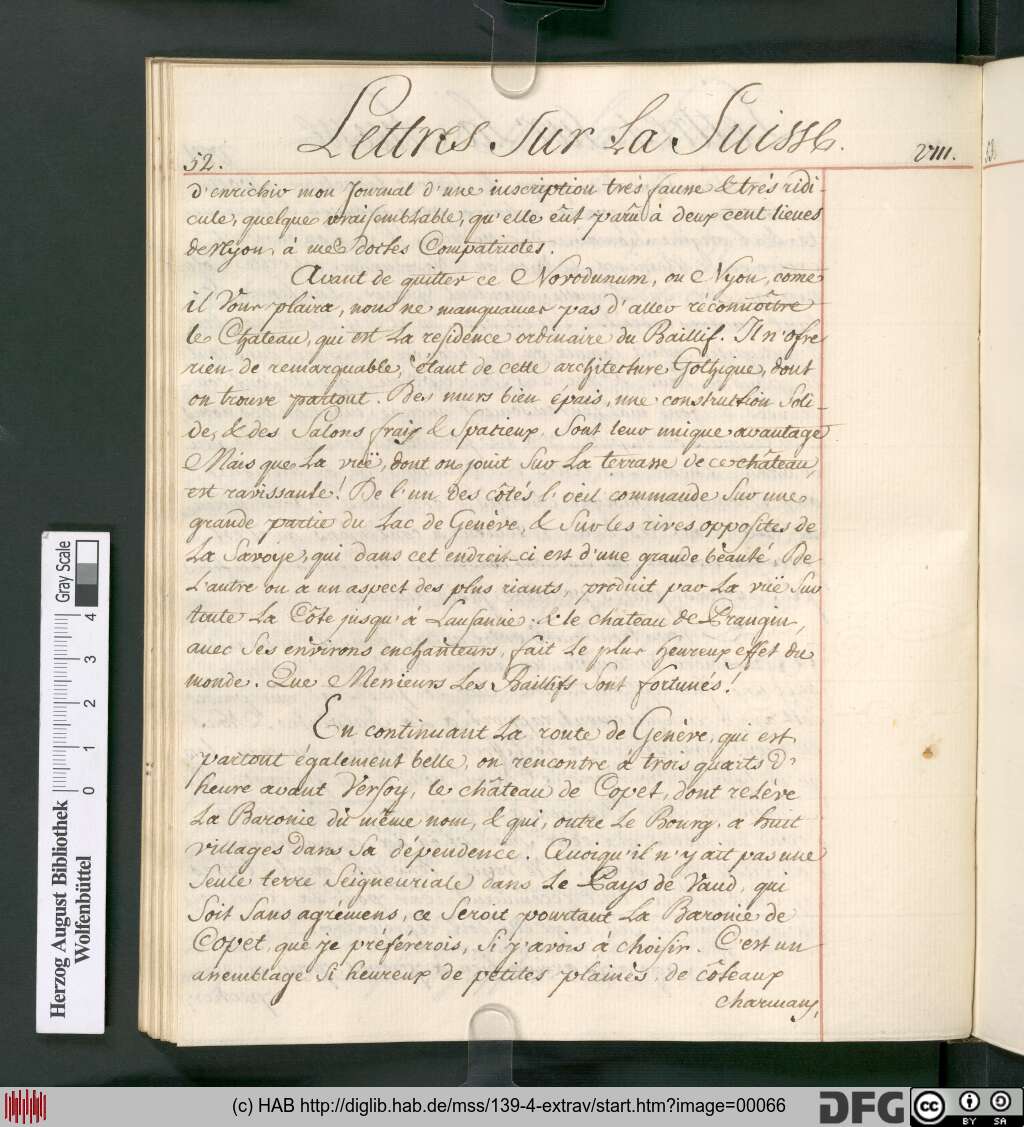 Lettres sur la Suisse.
52.
VIII.
d'enrichir mon Journal d'une inscription trés fausse & trés ridi-
cule, quelque vraisemblable, qu'elle eût parû à deux cent lieues
de Nyon, à mes doctes Compatriotes.
Avant de quitter ce Novodunum, ou Nyon, come
il Vous plaira, nous ne manquames pas d'aller réconnoître
le Chateau, qui est la residence ordinaire du Baillif. Il n'ofre
rien de remarquable, étant de cette architecture Gothique, dont
on trouve partout. Des murs bien épais, une construction soli-
de, & des Salons frais & spatieux, sont leur unique avantage
Mais que la vuë, dont on jouit sur la terrasse de ce château,
est ravissante! De l'un des côtés l'oeil commande sur une
grande partie du Lac de Genève, & sur les rives opposites de
la Savoye, qui dans cet endroit-ci est d'une grande béauté. De
l'autre on a un aspect des plus riants, produit par la vuë sur
toute la Côte jusqu'à Lausanne; & le chateau de Prangin,
avec ses environs enchanteurs, fait le plus heureux effet du
monde. Que Messieurs les Baillifs sont fortunés!
En continuant la route de Genève, qui est
partout également belle, on rencontre à trois quarts d'
heure avant Versoy, le château de Copet, dont reléve
la Baronie du même nom, & qui, outre le Bourg, a huit
villages dans sa dépendence. Quoiqu'il n'y ait pas une
seule terre seigneuriale dans le Pays de Vaud, qui
soit sans agrémens, ce seroit pourtant la Baronie de
Copet, que je préférerois, si j'avois à choisir. C'est un
assemblage si heureux de petites plaines, de côteaux
charmans,
Herzog August Bibliothek
Wolfenbüttel
0 1 2 3 4
Gray Scale
(c) HAB http://diglib.hab.de/mss/139-4-extrav/start.htm?image=00066
DFG
cc
BY SA